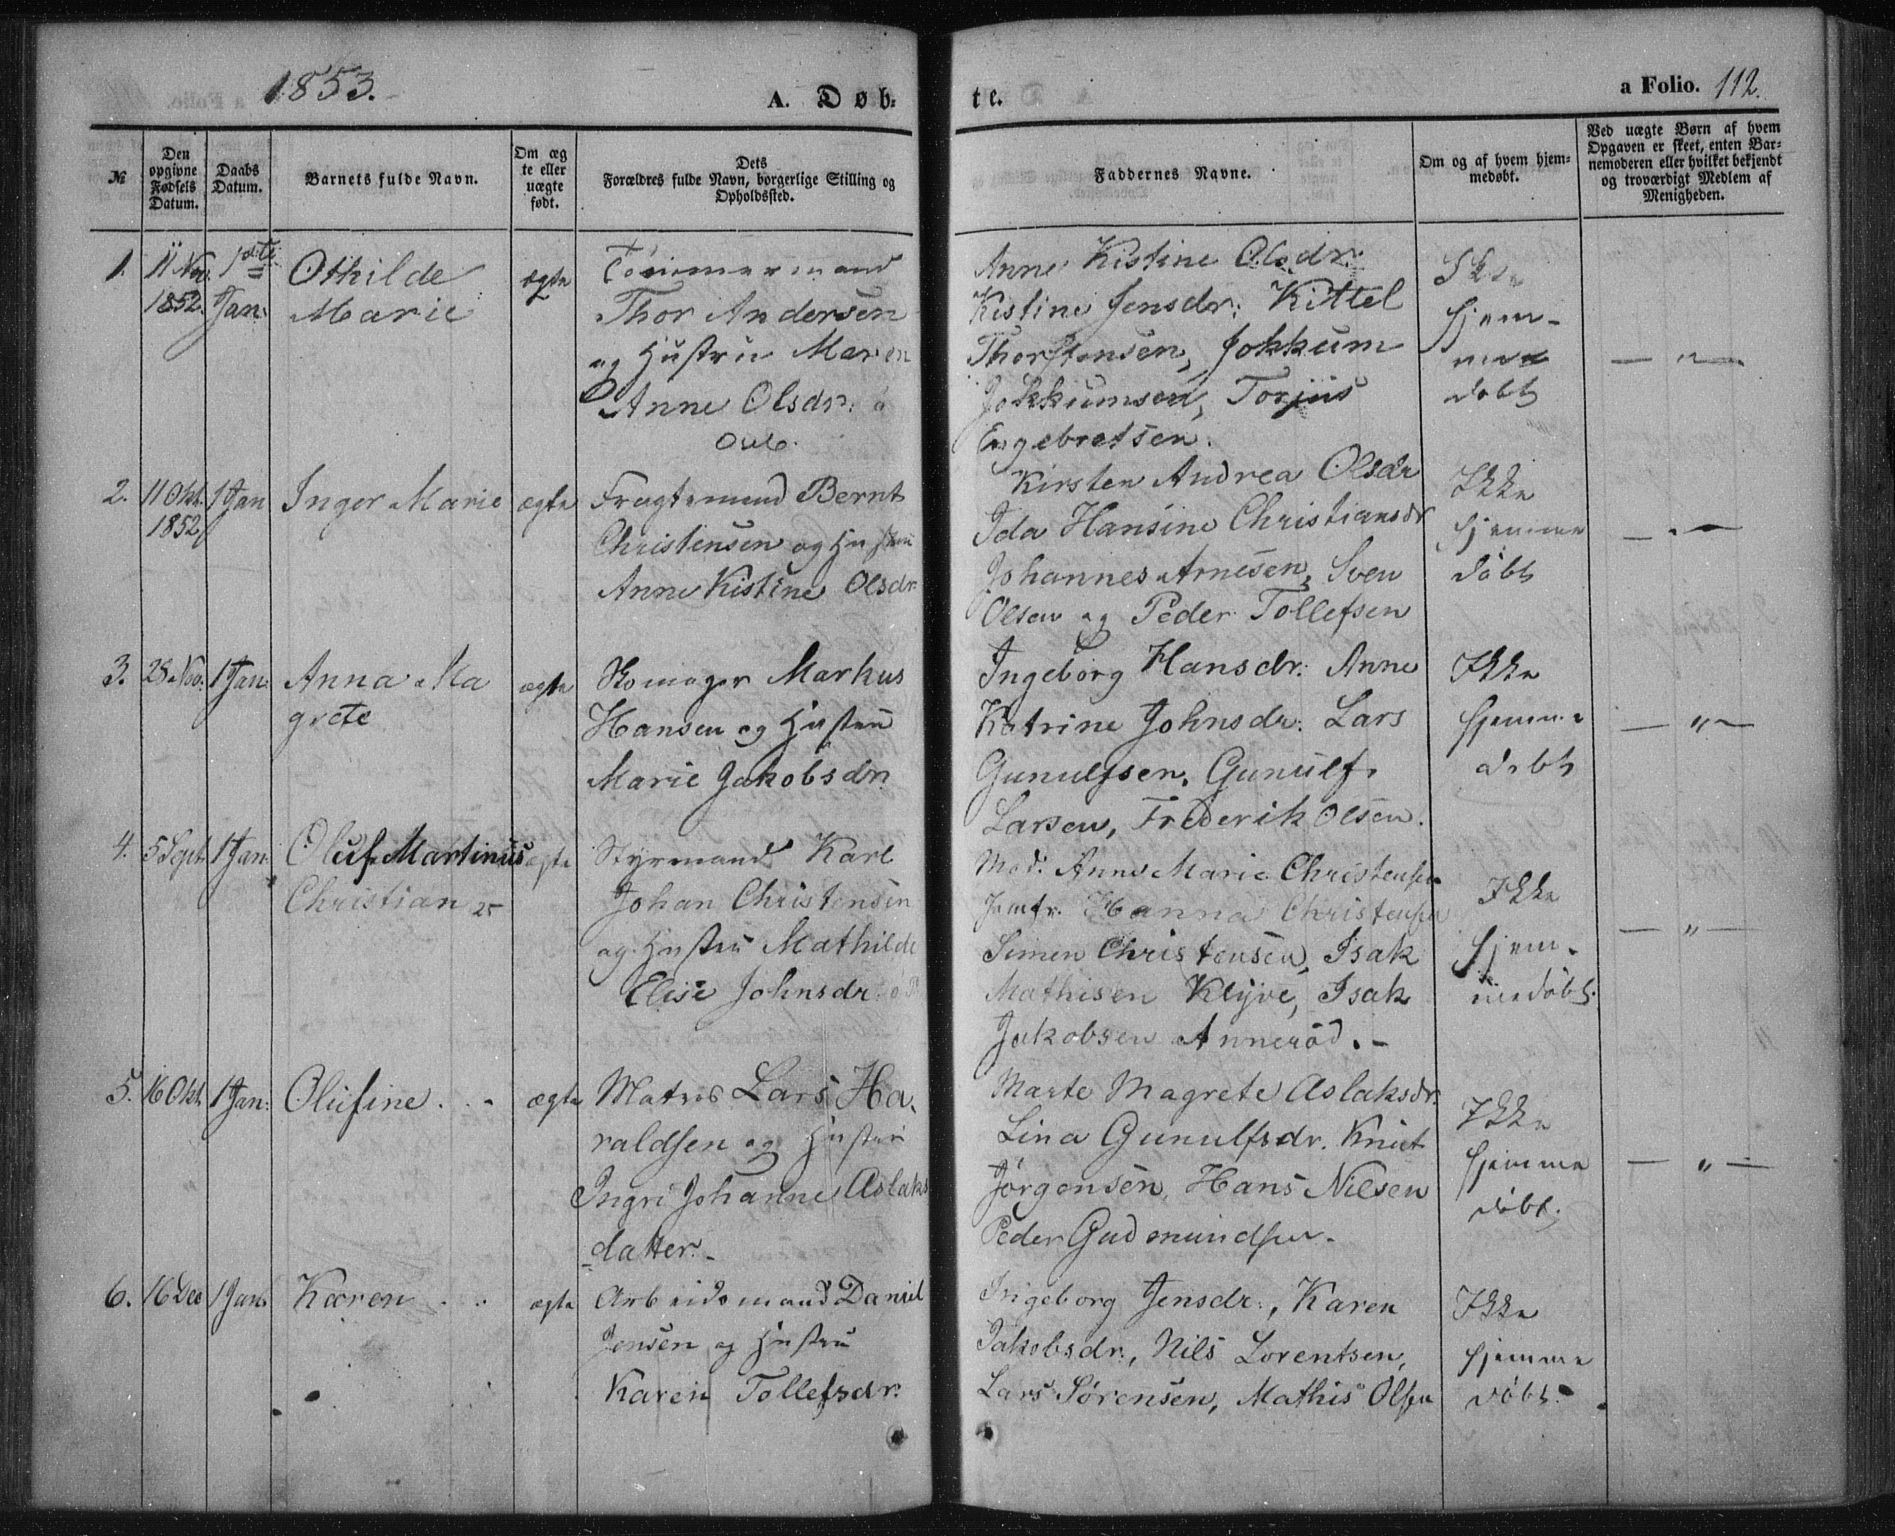 1853.
A. Døb-
te.
a Folio. 112.
№
Den opgivne Fødsels Datum.
Daabs Datum.
Barnets fulde Navn.
Om ægte eller uægte født.
Dets Forældres fulde Navn, borgerlige Stilling og Opholdssted.
Faddernes Navne.
Om og af hvem hjemmedøbt.
Ved uægte Børn af hvem Opgaven er skeet, enten Barnemoderen eller hvilket bekjendt og troværdigt Medlem af Menigheden.
1. 11 Nov. 1852. 1ste Jan:
Othilde
Marie
ægte
Tömmermand
Thor Andersen
og Hustru Maren
Anne Olsdr.
Anne Kistine Olsdr:
Kistine Jensdr: Kittel
Thorstensen, Jokkum
Jokkumsen, Torjus
Engebretsen.
Ikke
hjem-
me
döbt
— " —
2. 11 Okt. 1852 1 Jan
Inger Marie
ægte
Fragtemand Bernt
Christensen og Hustru
Anne Kistine Olsdr
Kirsten Andrea Olsdr
Ida Hansine Christiansdr
Johannes Arnesen, Sven
Olsen og Peder Tollefsen
Ikke
hjemme
döbt
— " —
3. 28 Nov. 1 Jan:
Anna Ma
grete
ægte
Skomager Markus
Hansen og Hustru
Marie Jakobsdr.
Ingeborg Hansdr: Anne
Katrine Johnsdr: Lars
Gunulfsen, Gunulf
Larsen, Frederik Olsen.
Ikke
hjemme
døbt
— " —
4. 5 Sept. 1 Jan:
Oluf Martinus
Christian
ægte
Styrmand Karl
Johan Christensen
og Hustru Mathilde
Elise Johnsdr.
Mad: Anne Marie Christensen
Jomfr. Hanna Christensen
Simen Christensen, Isak
Mathisen Klyve, Isak
Jakobsen Annerød. -
Ikke
hjem-
medöbt.
— " —
5. 16 Okt. 1 Jan:
Olufine . . -
ægte
Matros Lars Ha-
raldsen og Hustru
Ingri Johanne Aslaks
datter. -
Marte Magrete Aslaksdr.
Lina Gunulfsdr. Knut
Jørgensen, Hans Nilsen
Peder Gudmundsen -
Ikke
hjemme
döbt.
— " —
6. 16 Dec 1 Jan.
Karen . .
ægte
Arbeidsmand Daniel
Jensen og Hustru
Karen Tollefsdr.
Ingeborg Jensdr., Karen
Jakobsdr., Nils Lorentsen,
Lars Sørensen, Mathis Olsen
Ikke
hjemme
döbt.